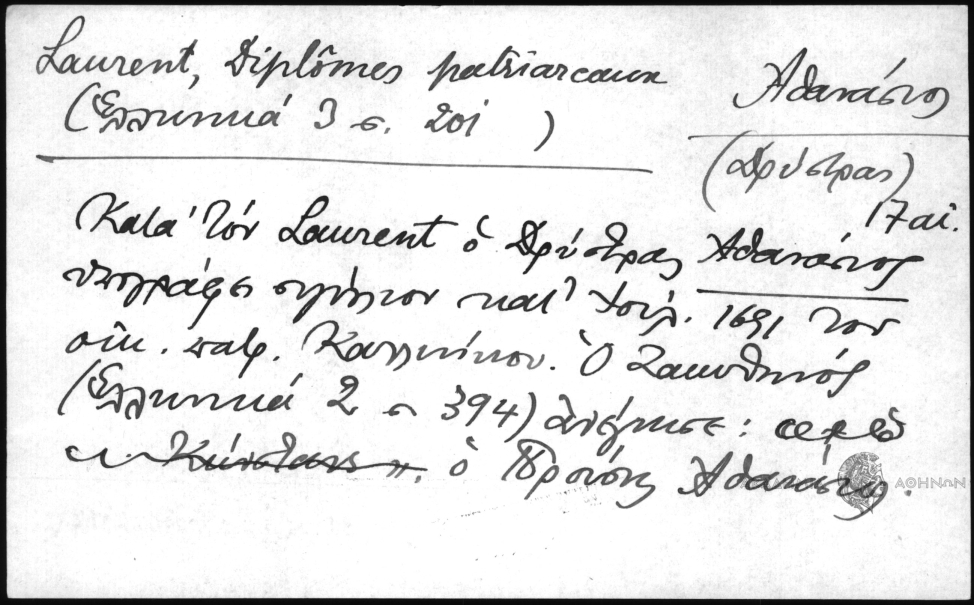 Laurent, Diplômes patriarcaux
(Ἑλληνικά 3 σ. 201 )
Ἀθανάσιος
(Δρύστρας)
17 αἰ.
Κατά τόν Laurent ὁ Δρύστρας Ἀθανάσιος
ὑπογράφει σιγίλλιον κατ' Ἰούλ. 1691 του
οἰκ. πατρ. Καλλινίκου. Ὁ Ζακυθηνός
(Ἑλληνικά 2 σ 394) ἀνέγνωσε:
ὁ Προύσης Ἀθανάσιος.
ΑΘΗΝΩΝ